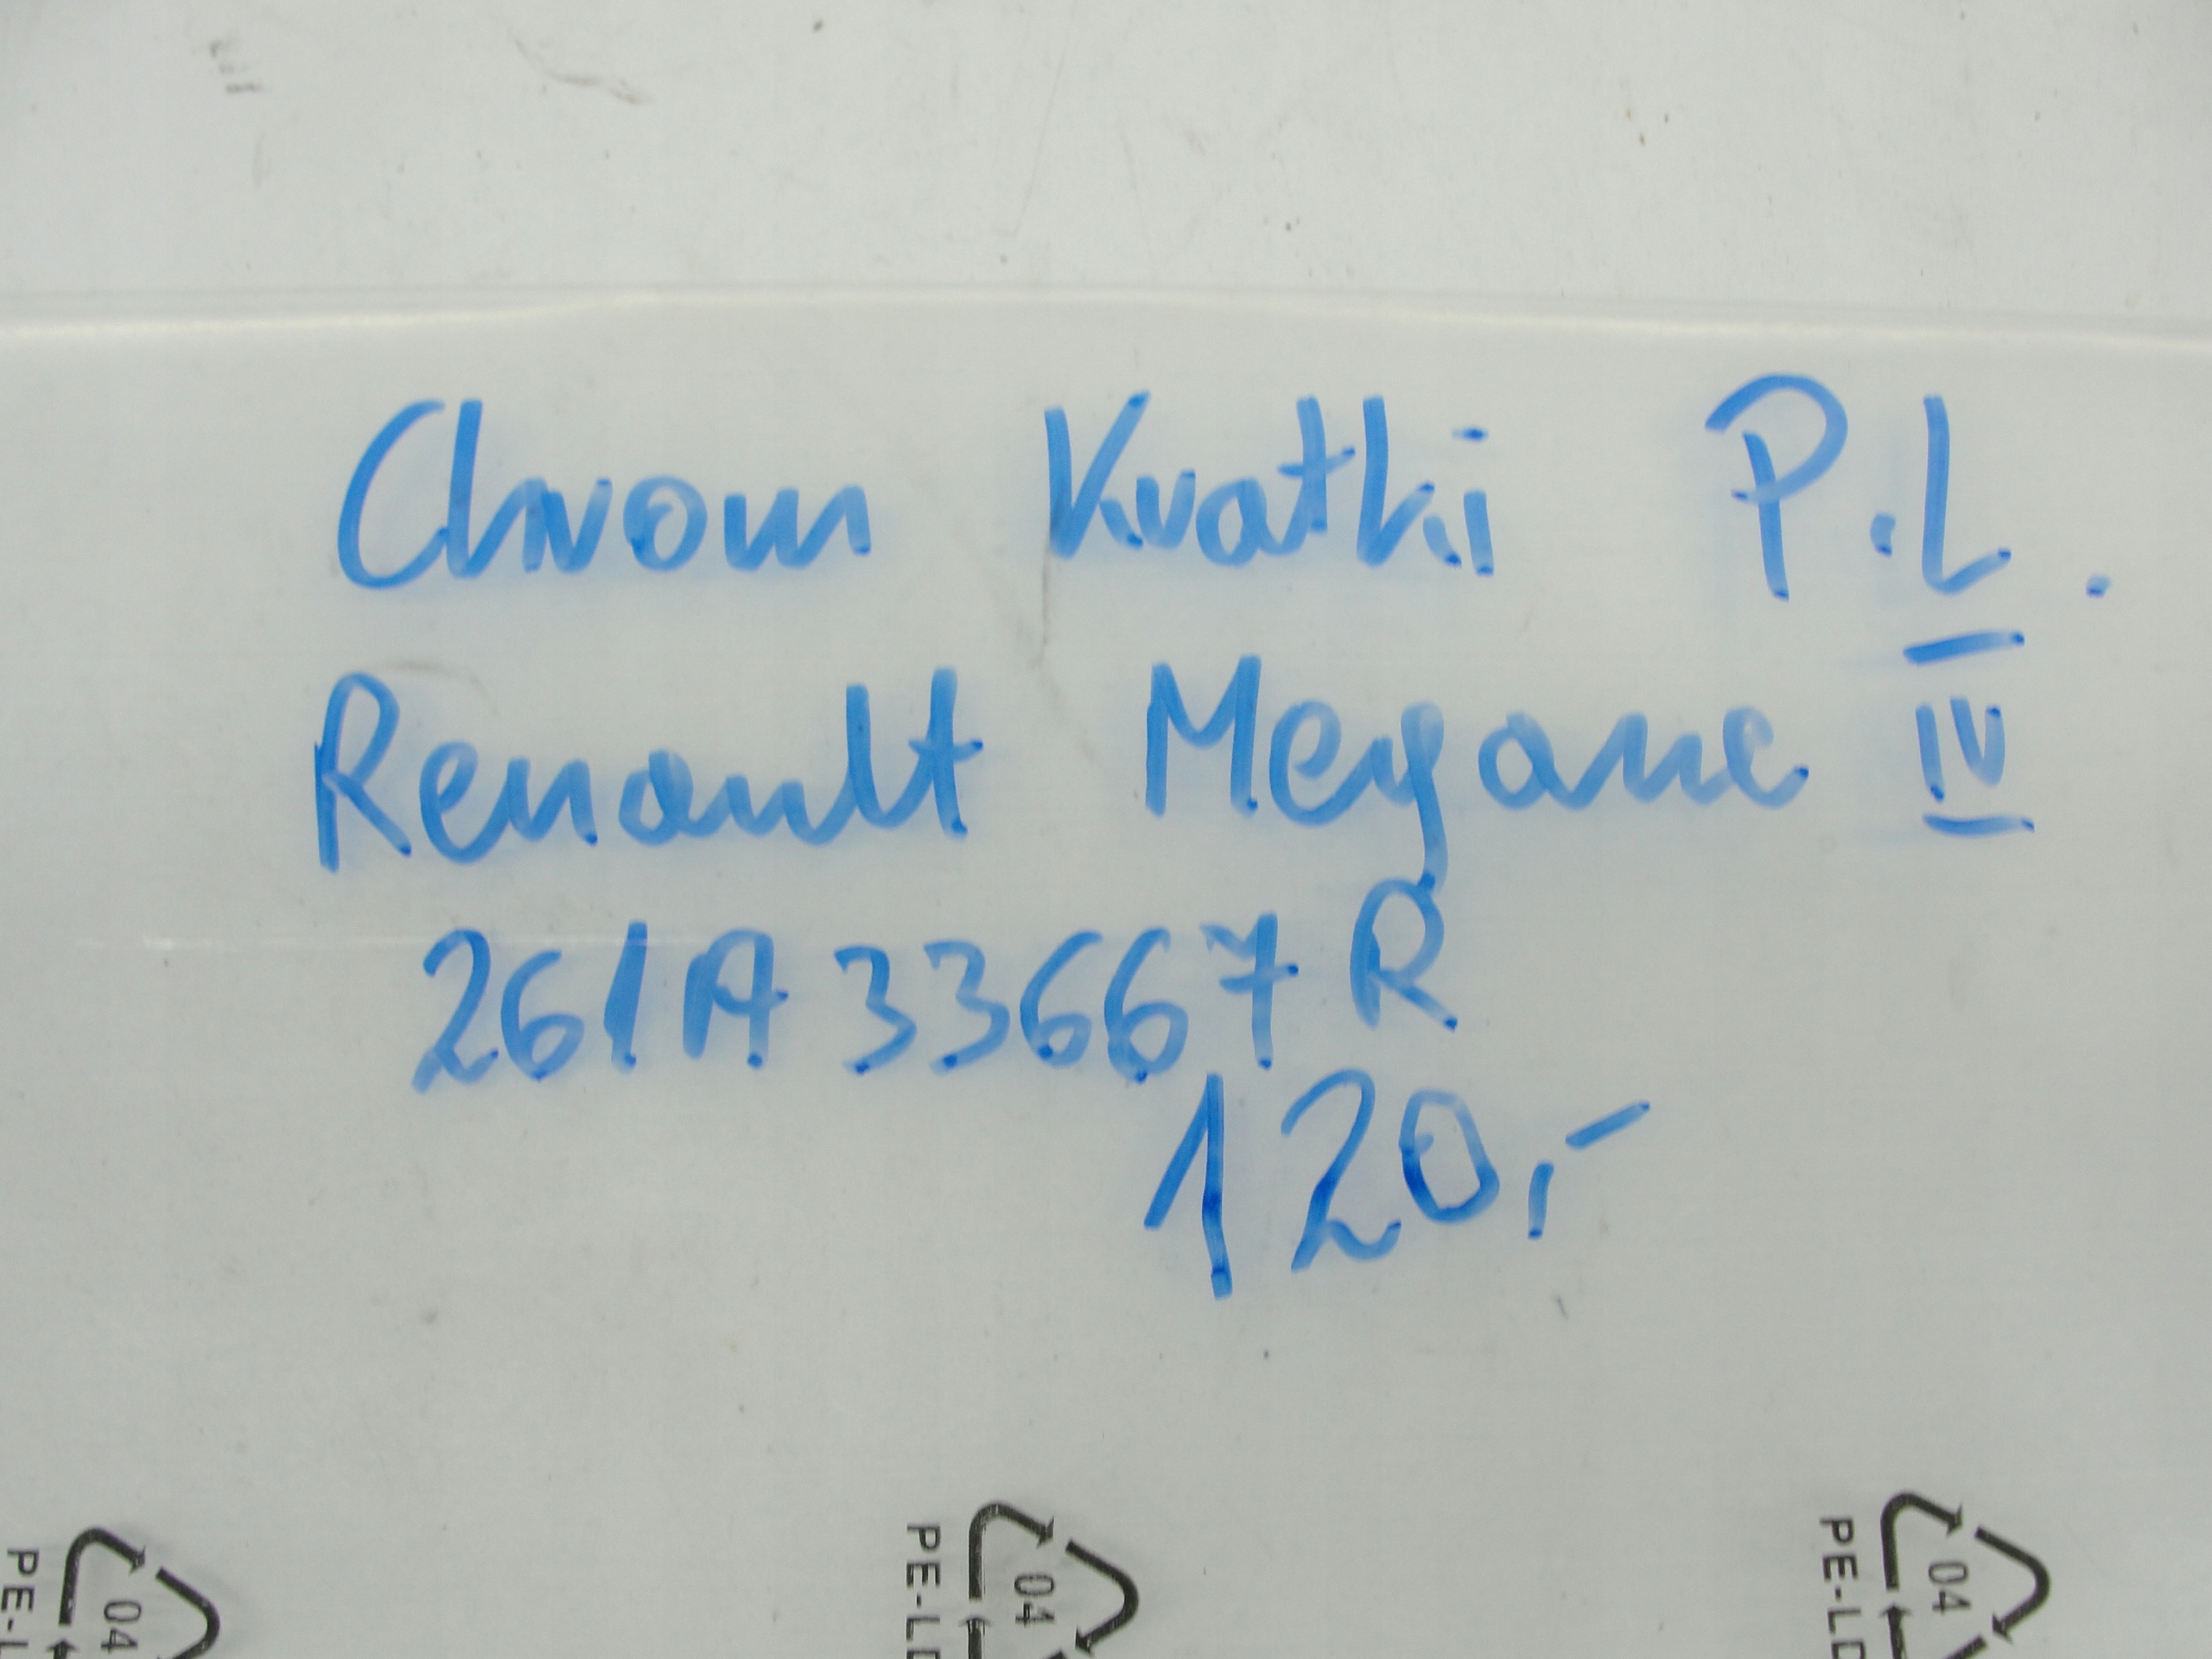 Chrom Kratki P.L.
Renault Megane IV
261A33667R
120,-
PE-L
04
PE-LD
04
PE-LD
04